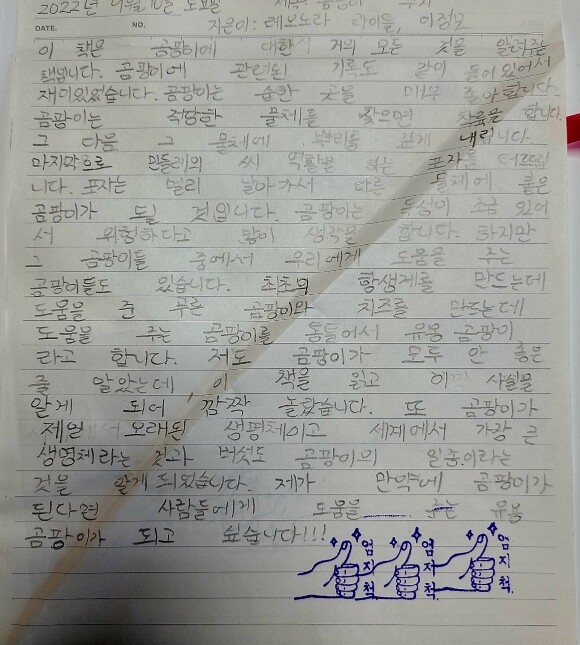 2022년 9월 10일 토요일 제목: 곰팡이
DATE. NO. 지은이: 레오노라 라이틀, 이정모
이 책은 곰팡이에 대한 거의 모든 것을 알려주는
책입니다. 곰팡이에 관련된 기록도 같이 들어 있어서
재미있었습니다. 곰팡이는 습한 곳을 매우 좋아합니다.
곰팡이는 적당한 물체를 찾으면 착륙을 합니다.
그 다음 그 물체에 뿌리를 깊게 내립니다.
마지막으로 민들레의 씨 역할을 하는 포자를 터뜨립
니다. 포자는 멀리 날아가서 다른 물체에 붙은
곰팡이가 될 것입니다. 곰팡이는 독성이 조금 있어
서 위험하다고 많이 생각을 합니다. 하지만
그 곰팡이들 중에서 우리에게 도움을 주는
곰팡이들도 있습니다. 최초의 항생제를 만드는데
도움을 준 푸른 곰팡이와 치즈를 만드는데
도움을 주는 곰팡이를 통틀어서 유용 곰팡이
라고 합니다. 저도 곰팡이가 모두 안 좋은
줄 알았는데, 이 책을 읽고 이 사실을
알게 되어 깜짝 놀랐습니다. 또 곰팡이가
제일 오래된 생명체이고 세계에서 가장 큰
생명체라는 것과 버섯도 곰팡이의 일종이라는
것을 알게 되었습니다. 제가 만약에 곰팡이가
된다면 사람들에게 도움을 주는 유용
곰팡이가 되고 싶습니다!!!
엄지척 엄지척 엄지척